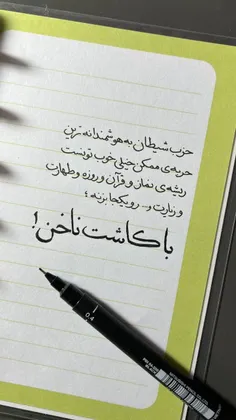 حزب شیطان به هوشمندانه ترین
حربه‌ی ممکن خیلی خوب تونست
ریشه‌ی نماز و قرآن و روزه و طهارت
و زیارت و... رو یکجا بزنه ؛
با کاشت ناخن!
0.4